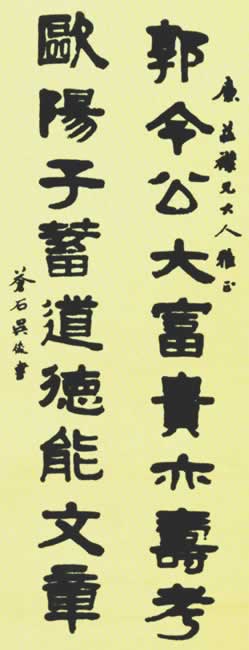 兄大人雅正
郭令公大富貴亦壽考
歐陽子蓄道德能文章
蒼石吳俊書